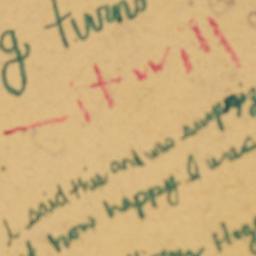 g turns
— it will
I said this and was surprised
how happy I was